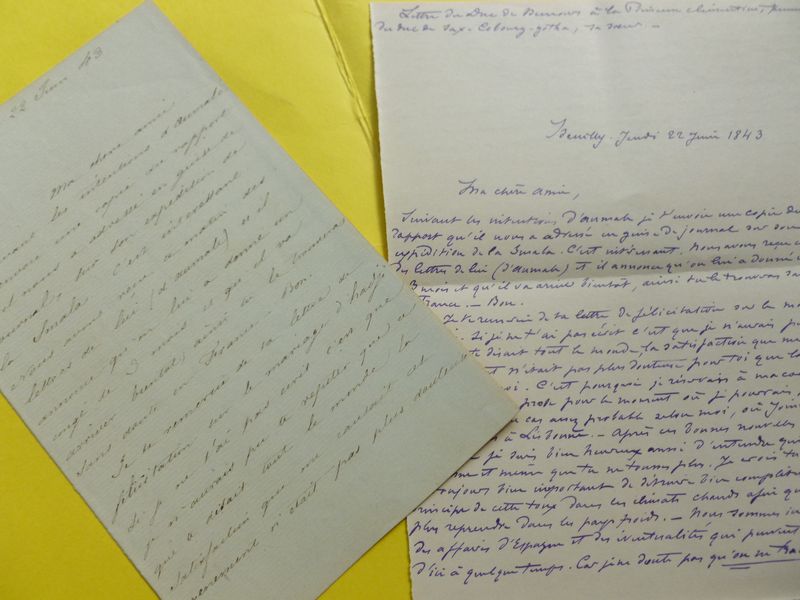 22 Juin 43
Ma chère amie
les intentions d'Aumale
une copie du rapport
nous a adressé en guise de
journal, sur son expédition de
la Smala. C'est intéressant
Nous avons reçu ce matin des
lettres de lui (d'Aumale) et il
annonce qu'on lui a donné un
congé de 3 mois et qu'il va
arriver bientôt, ainsi tu le trouveras
sans doute en France. Bon.
Je te remercie de ta lettre de
félicitation sur le mariage d'hadj
Si je ne t'ai pas écrit c'est que
je n'aurais pu te répéter que ce
que te disait tout le monde, la
satisfaction que me causait cet
évènement n'était pas plus douteuse
Lettre du Duc de Nemours à la Princesse Clémentine,
du duc de Sax-Cobourg-gotha, sa soeur. —
Neuilly. Jeudi 22 Juin 1843
Ma chère Amie,
Suivant les intentions d'Aumale je t'envoie une copie du
rapport qu'il nous a adressé en guise de journal sur son
expédition de la Smala. C'est intéressant. Nous avons reçu ce
des lettres de lui (d'Aumale) et il annonce qu'on lui a donné
3 mois et qu'il va arriver bientôt, ainsi tu le trouveras sans
France. — Bon.
Je te remercie de ta lettre de félicitation sur le
Si je ne t'ai pas écrit c'est que je n'aurais pu
te disait tout le monde, la satisfaction que me
n'était pas plus douteuse pour toi que
C'est pourquoi je réservais à ma
prose pour le moment où je pourrais,
cas assez probable selon moi, où Join
à Lisbonne. — Après ces bonnes nouvelles
je suis bien heureux aussi d'entendre que
et même que tu ne tousses plus. Je crois
toujours bien important de détruire bien complètement
principe de cette toux dans les climats chauds afin qu'
plus reprendre dans les pays froids. — Nous sommes ici
des affaires d'Espagne et des éventualités qui peuvent
d'ici à quelque temps. Car je ne doute pas qu'on ne tra